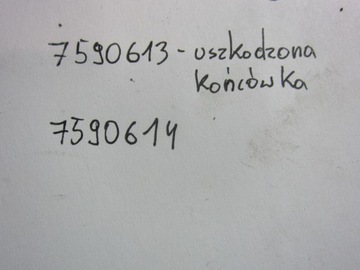 7590613 - uszkodzona
końcówka
7590614